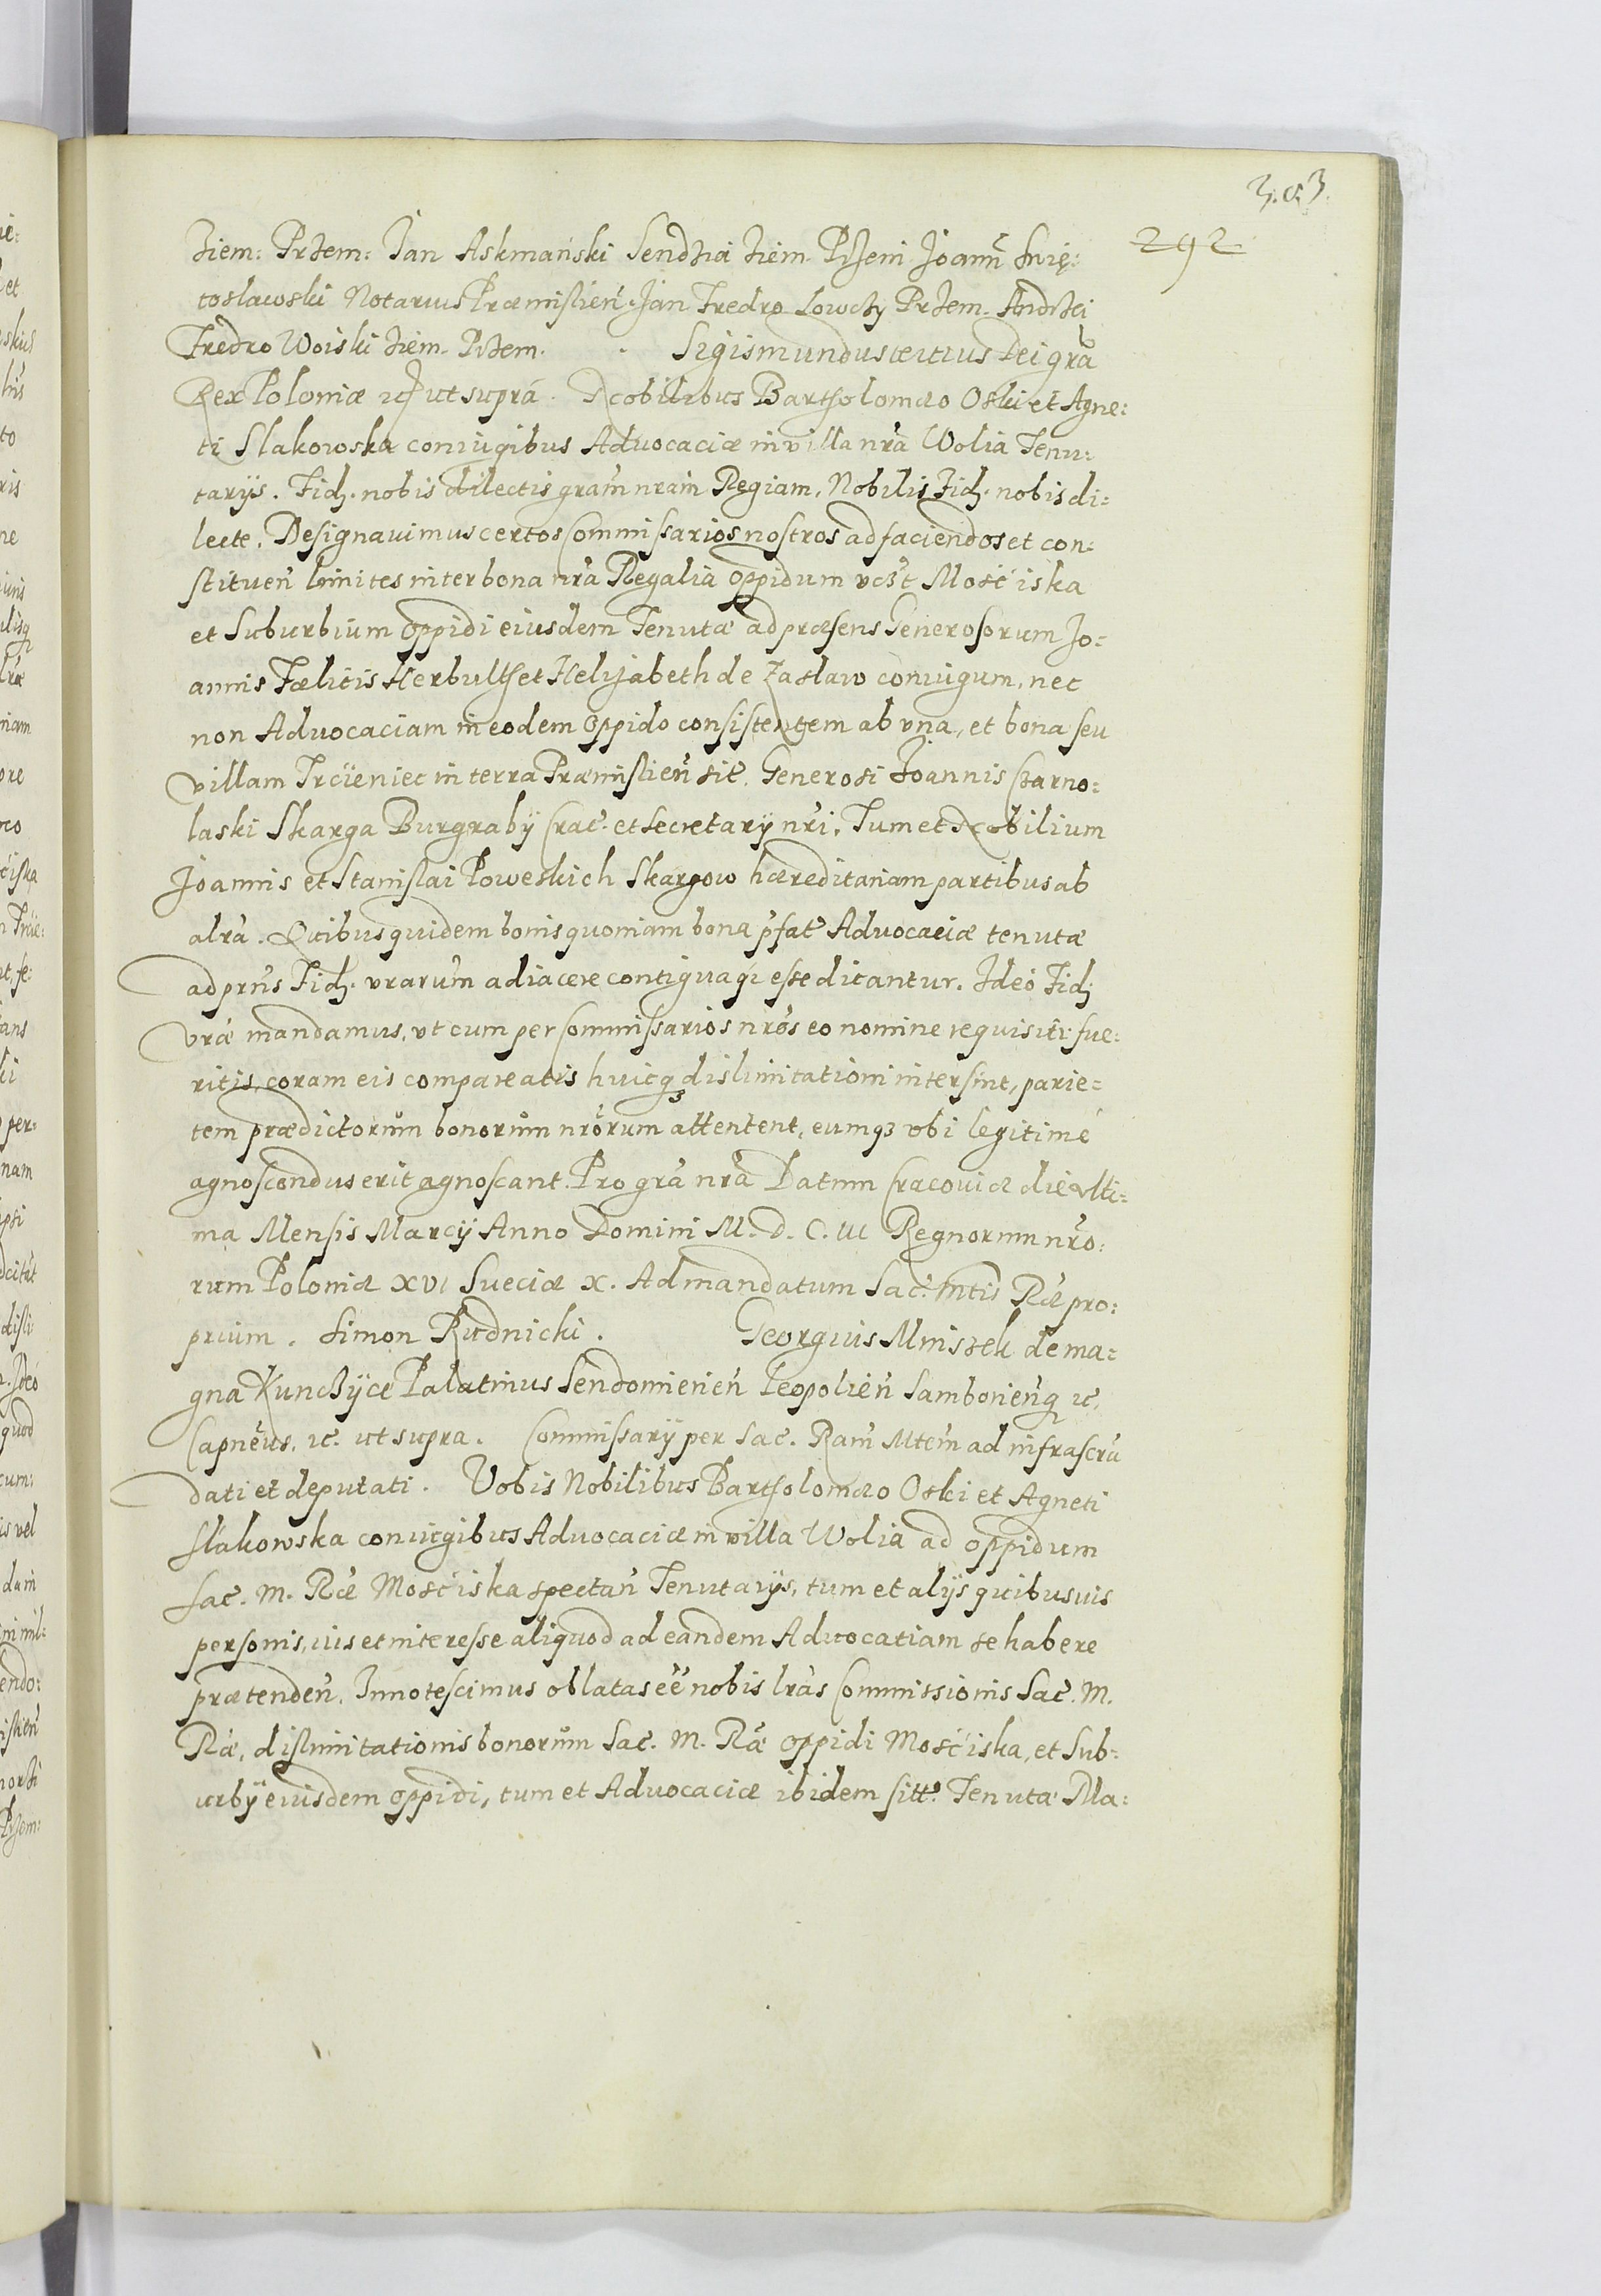 303.
292
Ziem: Przem: Jan Askmański Sendzia Ziem. Przeni Joann̄ Swię:
toslawski Notarius Præmislien̄. Jan Fredro Lowczy Przem. Andrzei
Fredro Woiski Ziem. Przem. Sigismundus tertius Dei gr̄a
Rex Poloniæ ut supra. Nobilibus Bartholomæo Oski et Agne:
ti Slakowska coniugibus Advocaciæ in villa nr̄a Wolia Tenu:
tarÿs. Fidz. nobis dilectis gram̄ nram̄ Regiam, Nobilis Fidz. nobis di:
lecte. Designavimus certos Commissarios nostros ad faciendos et con:
stituen̄ limites inter bona nr̄a Regalia oppidum vczt Mościska
et Suburbium oppidi eiusdem Tenutæ ad præsens Generosorum Jo:
annis Fælicis Herbulth et Helizabeth de Zaslaw coniugum, nec
non Advocaciam in eodem oppido consistentem ab una, et bona seu
villam Trcieniec in terra Præmislien̄ sit̄. Generosi Joannis Czarno:
laski Skarga Burgrabÿ Crac̄. et Secretarÿ nr̄i, Tum et Nobilium
Joannis et Stanislai Poweskich Skargow hæreditariam partibus ab
alr̄a. Quibus quidem bonis quoniam bona p̄fat̄ Advocaciæ tenutæ
ad prn̄s Fidz. vrarum̄ adiacere contiguaq̃ esse dicantur. Ideo Fidz
vrǣ mandamus, vt cum per Commissarios nrōs eo nomine requisiti fue:
ritis, coram eis compareatis huicq̃ dislimitationi intersint, parie:
tem prædictorum̄ bonorum̄ nrōrum attentent, eumqz vbi legitime
agnoscendus erit agnoscant. Pro gr̄a nr̄a Datum Cracoviæ die vlti:
ma Mensis Marcÿ Anno Domini M. D. C. III Regnorum nrō:
rum Poloniæ XVI Sueciæ X. Ad mandatum Sac̄. Mtis Rǣ pro:
prium. Simon Rudnicki. Georgius Mniszek de ma:
gna Kunczÿce Palatinus Sendomirien̄ Leopolien̄ Samborien̄q̃ ic.
Capnēus. ic. ut supra. Commissarÿ per Sac. Ram̄ Mtem̄ ad infrascr̄a
dati et deputati. Vobis Nobilibus Bartholomæo Oski et Agneti
Slakowska coniugibus Advocaciæ in villa Wolia ad oppidum
Sac̄. M. Rǣ Mościska spectan̄ Tenutarÿs, tum et alÿs quibusuis
personis, ius et interesse aliquod ad eandem Advocatiam se habere
prætenden̄. Innotescimus oblatas eē̄ nobis lrās Commissionis Sac̄. M.
Rǣ, dislimitationis bonorum̄ Sac̄. M. Rǣ oppidi Mościska, et Sub:
urbÿ eiusdem oppidi, tum et Advocaciæ ibidem sitt̄. Tenutæ Ma: